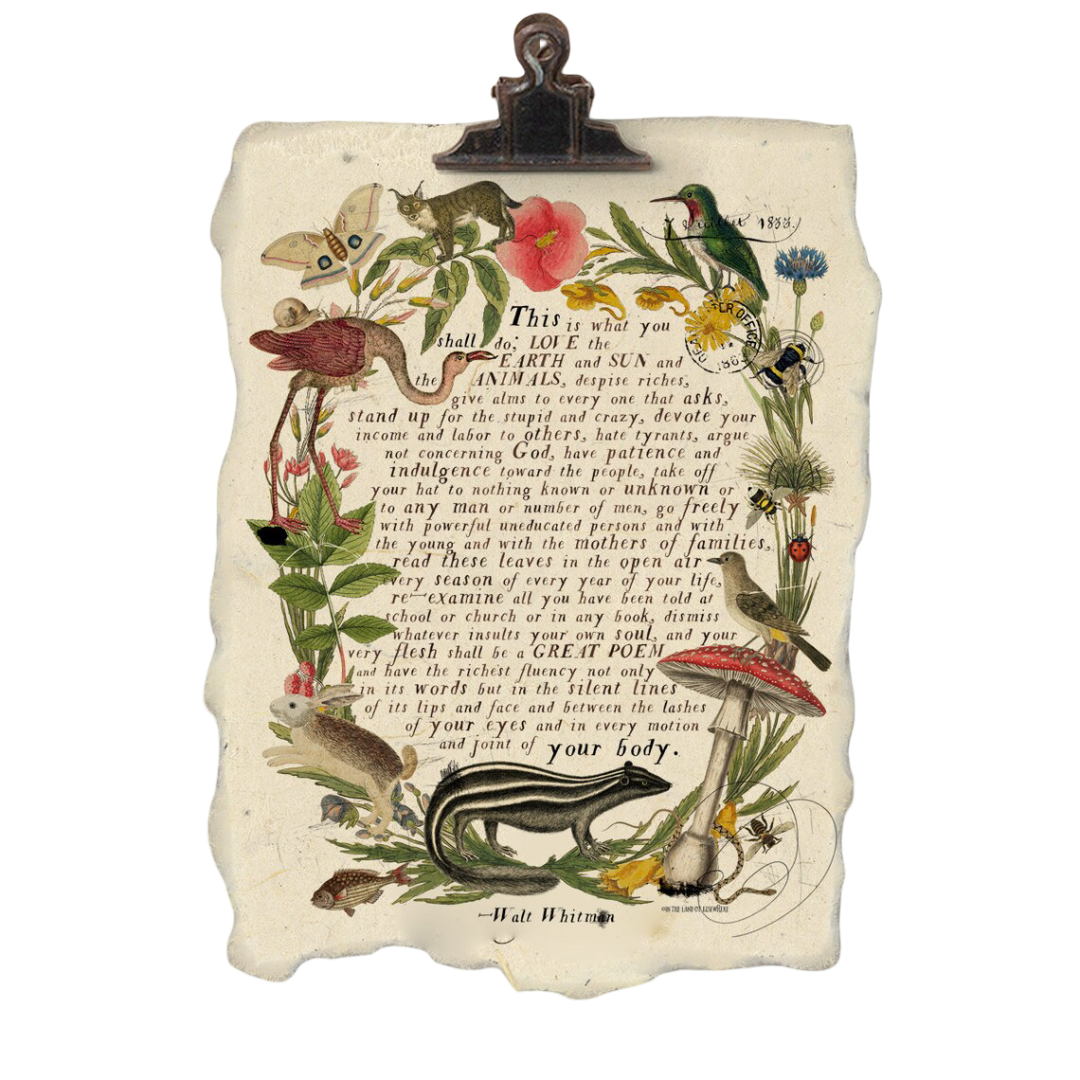 1833.
This is what you
shall do; LOVE the
EARTH and SUN and
the ANIMALS, despise riches,
give alms to every one that asks,
stand up for the stupid and crazy, devote your
income and labor to others, hate tyrants, argue
not concerning God, have patience and
indulgence toward the people, take off
your hat to nothing known or unknown or
to any man or number of men, go freely
with powerful uneducated persons and with
the young and with the mothers of families,
read these leaves in the open air
every season of every year of your life,
re-examine all you have been told at
school or church or in any book, dismiss
whatever insults your own soul, and your
very flesh shall be a GREAT POEM
and have the richest fluency not only
in its words but in the silent lines
of its lips and face and between the lashes
of your eyes and in every motion
and joint of your body.
—Walt Whitman
©IN THE LAND OF ELSEWHERE